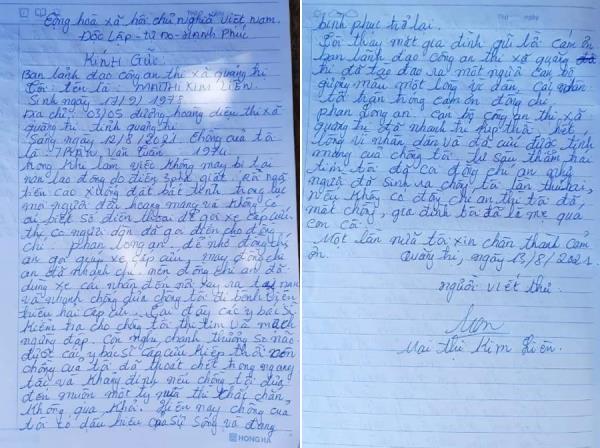 Cộng hòa xã hội chủ nghĩa Việt Nam.
Độc Lập - tự Do - Hạnh Phúc
KÍNH GỬI:
Ban lãnh đạo công an thị xã quảng trị
Tôi tên là: MAI THỊ KIM LIÊN.
Sinh ngày 1978
Địa chỉ: 03/05 đường hoàng diệu thị xã
quảng trị tỉnh quảng trị
Sáng ngày 12/8/2021 Chồng của tôi
là: TRẦN Văn Tiến 1974
trong lúc làm việc không may bị tai
nạn lao động do điện 3 pha giật. Rồi ngã
trên cao xuống đất bất tỉnh trong lúc
mọi người đều hoang mang và không có
ai biết số điện thoại để gọi xe cấp cứu
thì có người dân đã gọi điện cho đồng
chí: phan long an. để nhờ đồng chí
an gọi giúp xe cấp cứu, may đồng chí
an đã nhanh chí nên đồng chí an đã
dùng xe cá nhân đến nơi xảy ra tai nạn
và nhanh chóng đưa chồng tôi đi bệnh viện
triệu hải cấp cứu. Tại đây các y bác sĩ
kiểm tra cho chồng tôi thì tim và mạch
ngừng đập. Còn
được các y bác sĩ cấp cứu kiệp thời nên
chồng của tôi đã thoát chết trong gang
tấc và khẳng định nếu chồng tôi đưa
đến muộn một tý nữa thì chắc chắn,
không qua khỏi. Hiện nay chồng của
tôi có dấu hiệu của sự sống và đang
HONG HA
bình phục trở lại.
Tôi thay mặt gia đình gửi lời cảm ơn
ban lãnh đạo công an thị xã quảng
trị đã tạo đào ra một người cán bộ
gương mẫu một lòng vì dân, Cái nhân
tôi trân trọng cảm ơn đồng chí
phan long an. Cán bộ công an thị xã.
quảng trị đã nhanh trí giúp hết
lòng vì nhân dân và đã cứu được tính
mạng của chồng tôi. từ sâu thẳm trái
tim tôi đã coi đồng chí an như
người đã sinh ra chồng tôi lần thứ hai,
nếu không có đồng chí an thì tôi đã,
mất chồng, gia đình tôi đã lẻ mẹ góa
con côi.
Một lần nữa tôi xin chân thành cảm
ơn. Quảng trị, ngày 13/8/2021.
người viết thư
Liên
Mai thị Kim Liên.